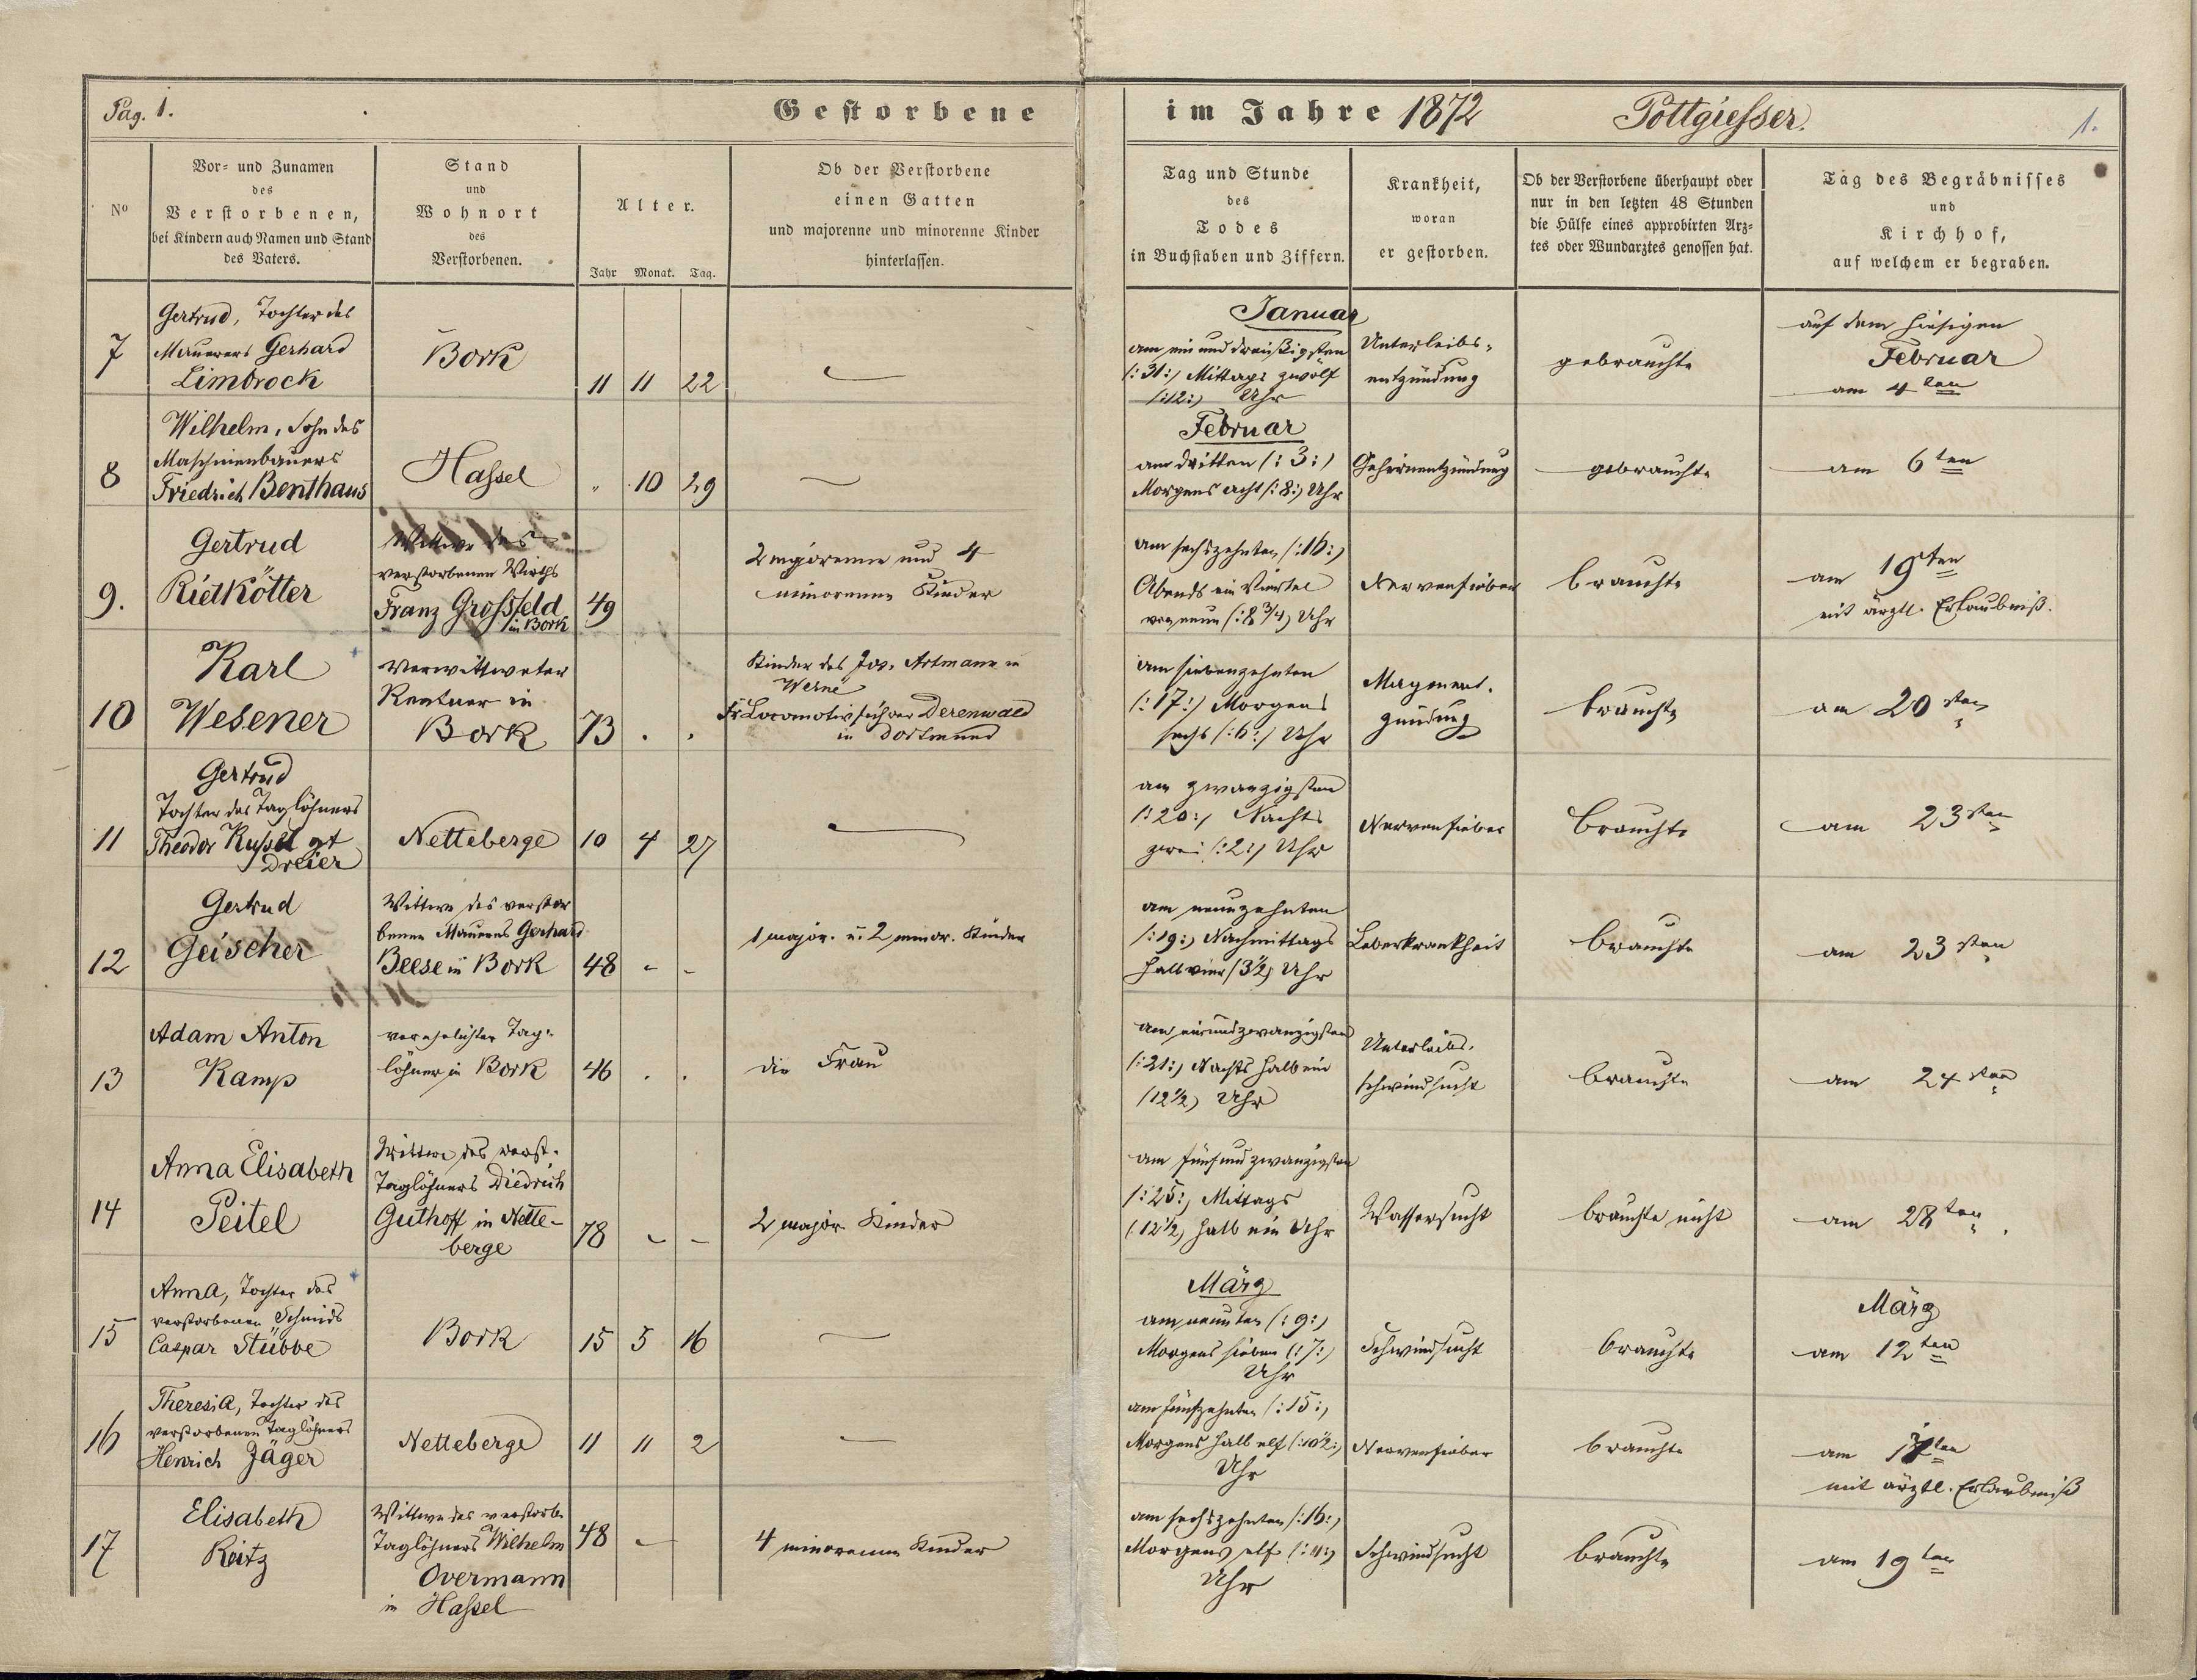 Pag. 1.
Gestorbene
im Jahre 1872
Pottgießer.
1.
No
Vor- und Zunamen
des
Verstorbenen,
bei Kindern auch Namen und Stand
des Vaters.
Stand
und
Wohnort
des
Verstorbenen.
Alter.
Jahr Monat. Tag.
Ob der Verstorbene
einen Gatten
und majorenne und minorenne Kinder
hinterlassen.
Tag und Stunde
des
Todes
in Buchstaben und Ziffern.
Krankheit,
woran
er gestorben.
Ob der Verstorbene überhaupt oder
nur in den letzten 48 Stunden
die Hülfe eines approbirten Arz-
tes oder Wundarztes genossen hat.
Tag des Begräbnisses
und
Kirchhof,
auf welchem er begraben.
7
Gertrud, Tochter des
Maurers Gerhard
Limbrock
Bork
11 11 22
Januar
am ein und dreißigsten
(:31:) Mittags zwölf
(:12:) Uhr
Unterleibs-
entzündung
gebrauchte
auf dem hiesigen
Februar
am 4ten
8
Wilhelm, Sohn des
Maschinenbauers
Friedrich Benthaus
Hassel
" 10 29
Februar
am dritten (:3:)
Morgens acht (:8:) Uhr
Gehirnentzündung
gebrauchte
am 6ten
9.
Gertrud
Rietkötter
Wittwe des
verstorbenen Wirths
Franz Großfeld
in Bork
49
2 majorenne und 4
minorenne Kinder
am sechszehnten (:16:)
Abends ein Viertel
vor neun (:8 3/4) Uhr
Nervenfieber
brauchte
am 19ten
mit ärztl. Erlaubniß.
10
Karl
Wesener
verwittweter
Rentner in
Bork
73 . .
Kinder des Jos. Artmann in
Werne
Fr Locomotivführer Derenwald
in Dortmund
am siebenzehnten
(:17:) Morgens
sechs (:6:) Uhr
Magenent-
zündung
brauchte
am 20sten
11
Gertrud
Tochter des Taglöhners
Theodor Kussel gt
Dreier
Netteberge
10 4 27
am zwanzigsten
(:20:) Nachts
zwei (:2:) Uhr
Nervenfieber
brauchte
am 23sten
12
Gertrud
Geischer
Wittwe des verstor
benen Maurers Gerhard
Beese in Bork
48 - -
1 major. u. 2 minor. Kinder
am neunzehnten
(:19:) Nachmittags
halb vier (3½) Uhr
Leberkrankheit
brauchte
am 23sten
13
Adam Anton
Kamp
verehelichter Tag-
löhner in Bork
46 . .
die Frau
am einundzwanzigsten
(:21:) Nachts halb ein
(12½) Uhr
Unterleibs-
schwindsucht
brauchte
am 24sten
14
Anna Elisabeth
Peitel
Wittwe des verst.
Taglöhners Diedrich
Guthoff in Nette-
berge
78 - -
2 major Kinder
am fünfundzwanzigsten
(:25:) Mittags
(:12½) halb ein Uhr
Wassersucht
brauchte nicht
am 28ten
15
Anna, Tochter des
verstorbenen Schmids
Caspar Stübbe
Bork
15 5 16
März
am neunten (:9:)
Morgens sieben (:7:)
Uhr
Schwindsucht
brauchte
März
am 12ten
16
Theresia, Tochter des
verstorbenen Taglöhners
Henrich Jäger
Netteberge
11 11 2
am fünfzehnten (:15:)
Morgens halb elf (:10½:)
Uhr
Nervenfieber
brauchte
am
mit ärztl. Erlaubniß
17
Elisabeth
Reitz
Wittwe des verstorb.
Taglöhners Wilhelm
Overmann
in Hassel
48 -
4 minorenne Kinder
am sechszehnten (:16:)
Morgens elf (:11:)
Uhr
Schwindsucht
brauchte
am 19ten